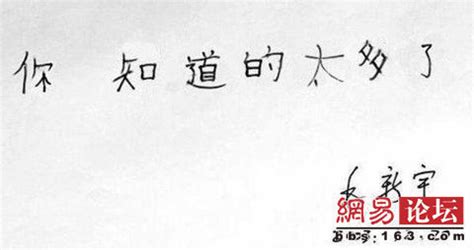 你 知道的太多了
毛新宇
網易 论坛
bbs.163.com